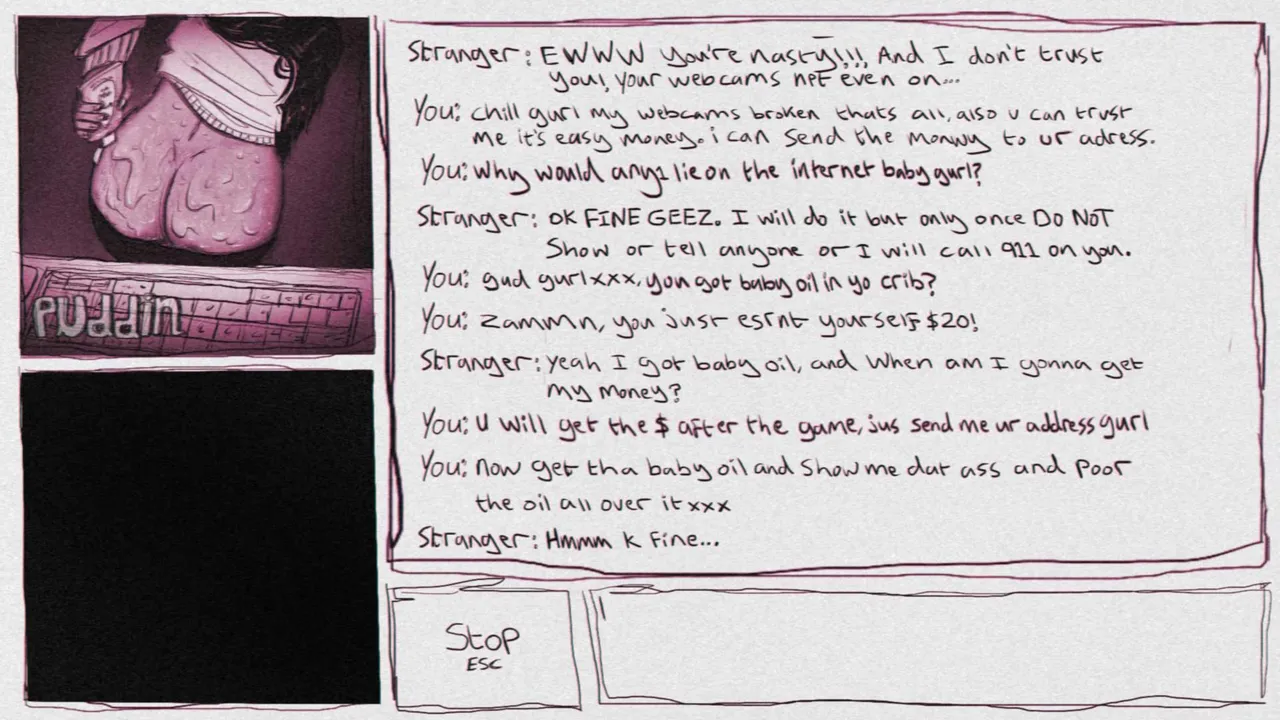 Stranger: EWWW you're nasty!!!, And I don't trust
you!, your webcams not even on...
You: chill gurl my webcams broken thats all, also u can trust
me it's easy money. i can send the monwy to ur adress.
You: why would any1 lie on the internet baby gurl?
Stranger: OK FINE GEEZ. I will do it but only once DO NOT
Show or tell anyone or I will call 911 on you.
You: gud gurl xxx, you got baby oil in yo crib?
You: Zammn, you just yourself $20!
Stranger: Yeah I got baby oil, and when am I gonna get
my money?
You: U will get the $ after the game, jus send me ur address gurl
You: now get tha baby oil and show me dat ass and poor
the oil all over it xxx
Stranger: Hmmm k fine...
puddin
Stop
ESC